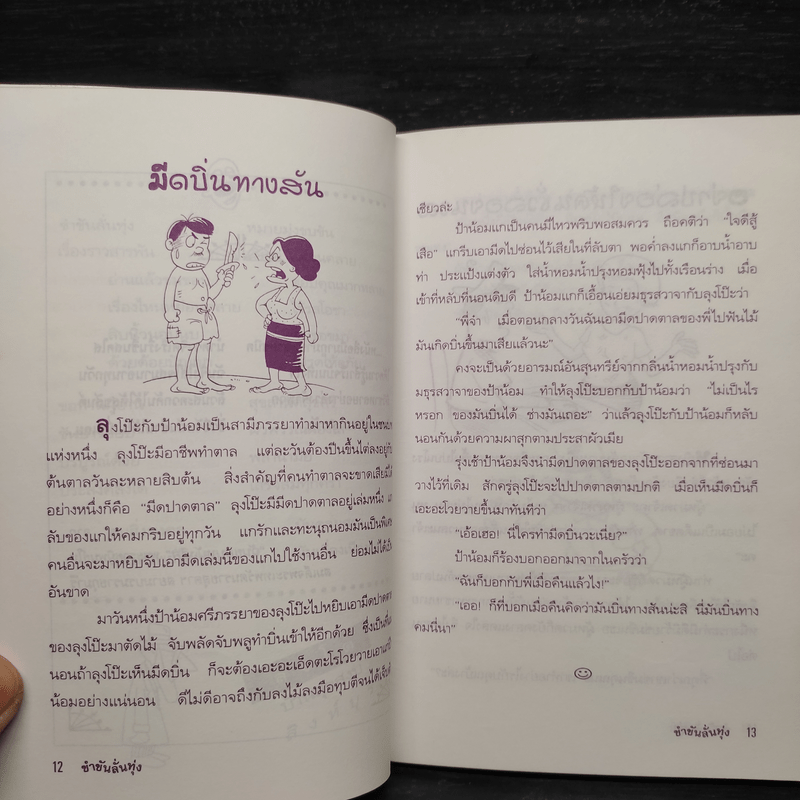 มีดบิ่นทางสัน
ลุงโป๊ะกับป้าน้อมเป็นสามีภรรยาทำมาหากินอยู่ใน
แห่งหนึ่ง ลุงโป๊ะมีอาชีพทำตาล แต่ละวันต้องปีนขึ้นไต่ลงอยู่กับ
ต้นตาลวันละหลายสิบต้น สิ่งสำคัญที่คนทำตาลจะขาดเสียมิได้
อย่างหนึ่งก็คือ “มีดปาดตาล” ลุงโป๊ะมีมีดปาดตาลอยู่เล่มหนึ่ง แก
ลับของแกให้คมกริบอยู่ทุกวัน แกรักและทะนุถนอมมันเป็นพิเศษ
คนอื่นจะมาหยิบจับเอามีดเล่มนี้ของแกไปใช้งานอื่น ย่อมไม่ได้เป็น
อันขาด
มาวันหนึ่งป้าน้อมศรีภรรยาของลุงโป๊ะไปหยิบเอามีดปาดตาล
ของลุงโป๊ะมาตัดไม้ จับพลัดจับพลูทำบิ่นเข้าให้อีกด้วย ซึ่งเป็นที่แน่
นอนถ้าลุงโป๊ะเห็นมีดบิ่น ก็จะต้องเอะอะเอ็ดตะโรโวยวายเอาแก่ป้า
น้อมอย่างแน่นอน ดีไม่ดีอาจถึงกับลงไม้ลงมือทุบตีจนได้เจ็บตัว
12 ขำขันลั่นทุ่ง
เชียวล่ะ
ป้าน้อมแกเป็นคนมีไหวพริบพอสมควร ถือคติว่า “ใจดีสู้
เสือ” แกรีบเอามีดไปซ่อนไว้เสียในที่ลับตา พอค่ำลงแกก็อาบน้ำอาบ
ท่า ประแป้งแต่งตัว ใส่น้ำหอมน้ำปรุงหอมฟุ้งไปทั้งเรือนร่าง เมื่อ
เข้าที่หลับที่นอนดิบดี ป้าน้อมแกก็เอื้อนเอ่ยมธุรสวาจากับลุงโป๊ะว่า
“พี่จ๋า เมื่อตอนกลางวันฉันเอามีดปาดตาลของพี่ไปฟันไม้
มันเกิดบิ่นขึ้นมาเสียแล้วนะ”
คงจะเป็นด้วยอารมณ์อันสุนทรีย์จากกลิ่นน้ำหอมน้ำปรุงกับ
มธุรสวาจาของป้าน้อม ทำให้ลุงโป๊ะบอกกับป้าน้อมว่า “ไม่เป็นไร
หรอก ของมันบิ่นได้ ช่างมันเถอะ” ว่าแล้วลุงโป๊ะกับป้าน้อมก็หลับ
นอนกันด้วยความผาสุกตามประสาผัวเมีย
รุ่งเช้าป้าน้อมจึงนำมีดปาดตาลของลุงโป๊ะออกจากที่ซ่อนมา
วางไว้ที่เดิม สักครู่ลุงโป๊ะจะไปปาดตาลตามปกติ เมื่อเห็นมีดบิ่นก็
เอะอะโวยวายขึ้นมาทันทีว่า
“เอ้อเฮอ! นี่ใครทำมีดบิ่นวะเนี่ย?”
ป้าน้อมก็ร้องบอกออกมาจากในครัวว่า
“ฉันก็บอกกับพี่เมื่อคืนแล้วไง!”
“เออ! ก็ที่บอกเมื่อคืนคิดว่ามันบิ่นทางสันน่ะสิ นี่มันบิ่นทาง
คมนี่นา”
ขำขันลั่นทุ่ง 13